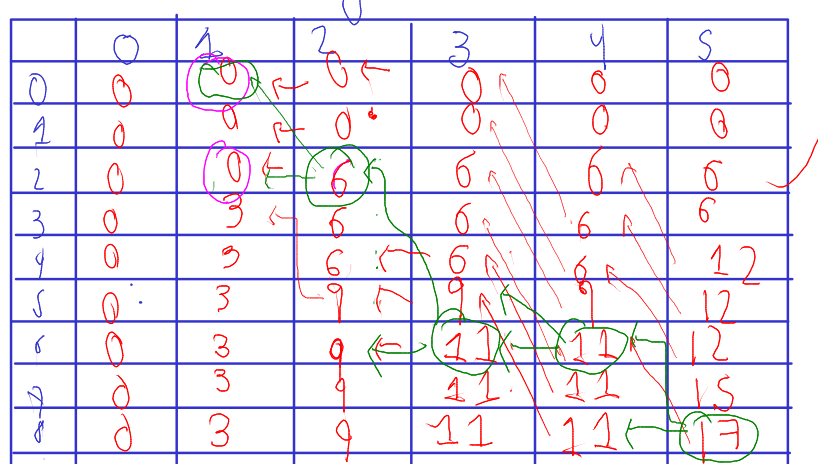 0 1 2 3 4 5
0 0 0 0 0 0 0
1 0 0 0 0 0 0
2 0 0 6 6 6 6
3 0 3 6 6 6 6
4 0 3 6 6 6 12
5 0 3 9 9 9 12
6 0 3 9 11 11 12
7 0 3 9 11 11 15
8 0 3 9 11 11 17